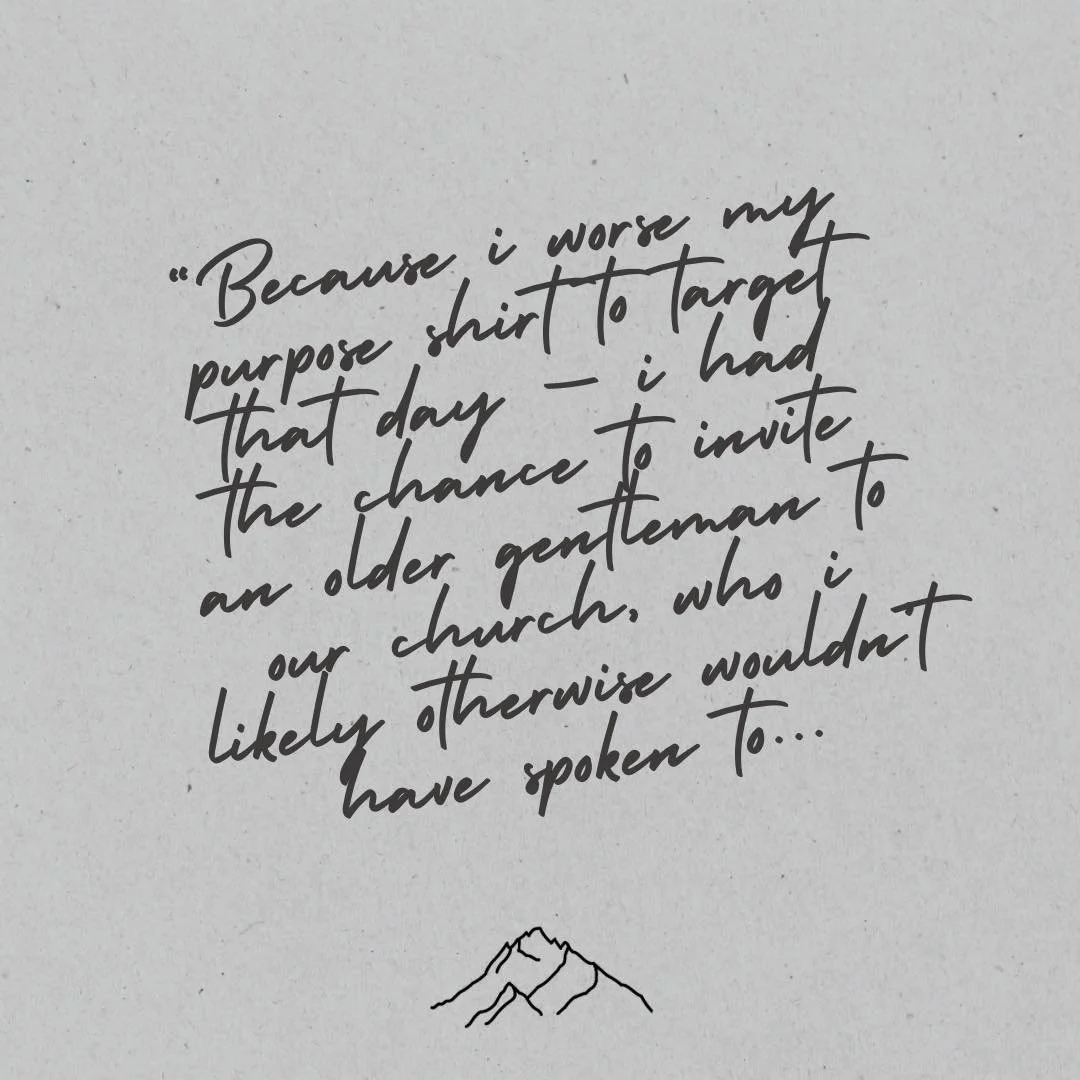 “Because i worse my
purpose shirt to target
that day – i had
the chance to invite
an older gentleman to
our church, who i
likely otherwise wouldn't
have spoken to...